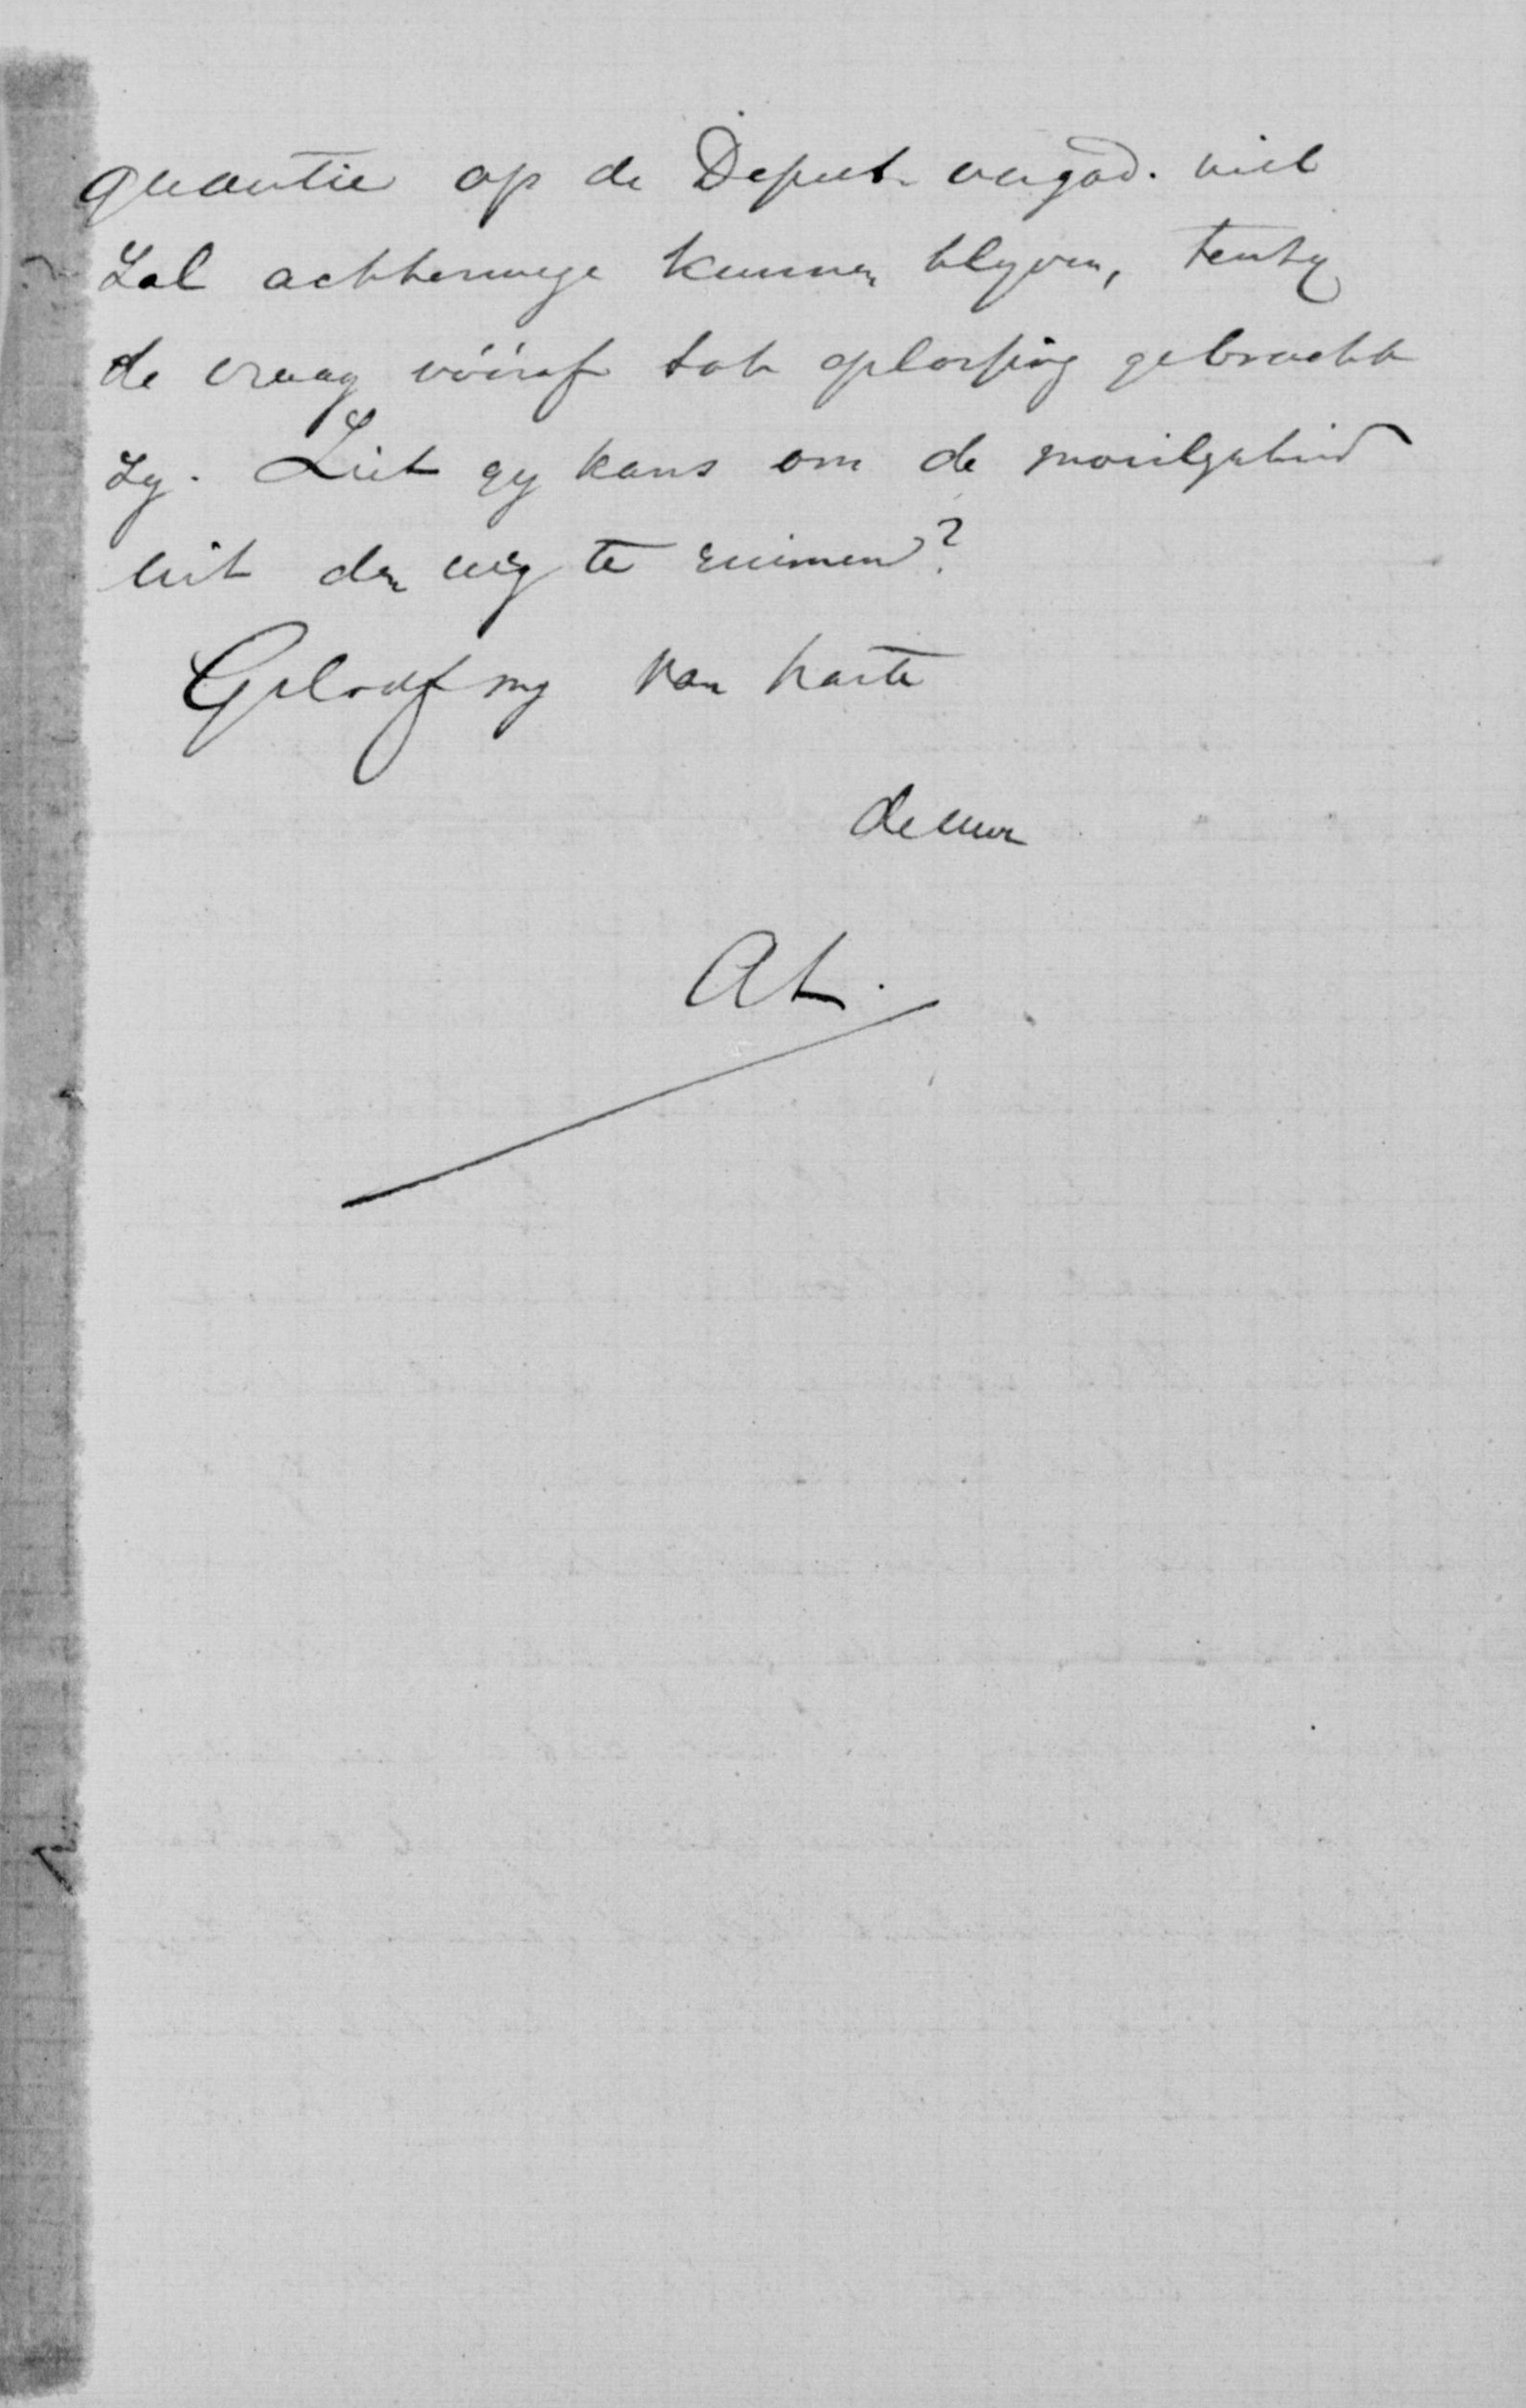 quaestie op de Deput. vergad. niet
zal achterwege kunnen blyven, tenzy
de vraag vóóraf tot oplossing gebracht
zy. Ziet gy kans om de moeilykheid
uit den weg te ruimen?
Geloof my van harte
de uwe
AL.